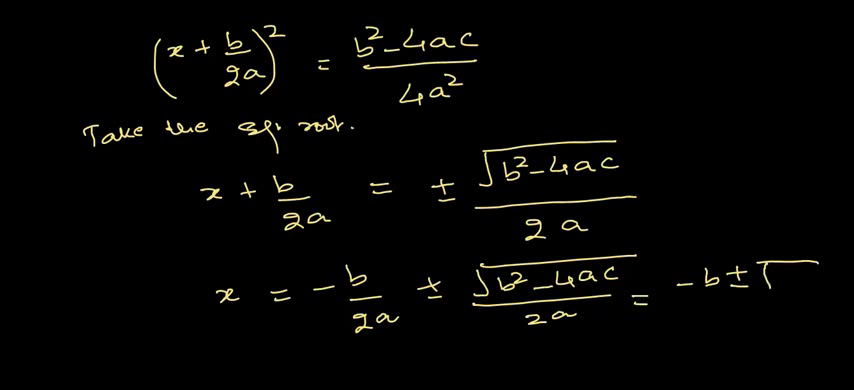 (x + b/2a)² = b² - 4ac / 4a²
Take the sq. root.
x + b/2a = ± √b² - 4ac / 2a
x = - b/2a ± √b² - 4ac / 2a = - b ± √